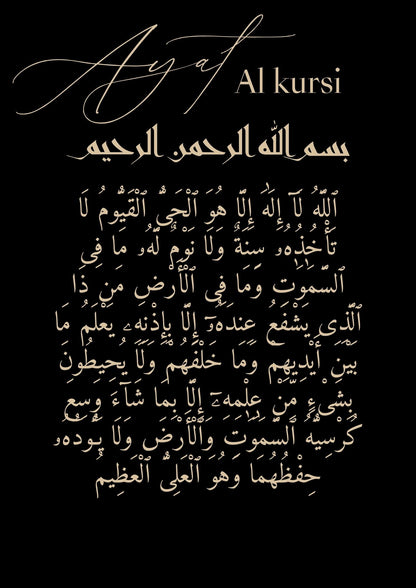 Ayat Al kursi
بسم الله الرحمن الرحيم
ٱللَّهُ لَآ إِلَٰهَ إِلَّا هُوَ ٱلْحَىُّ ٱلْقَيُّومُ لَا
تَأْخُذُهُۥ سِنَةٌ وَلَا نَوْمٌ لَّهُۥ مَا فِى
ٱلسَّمَٰوَٰتِ وَمَا فِى ٱلْأَرْضِ مَن ذَا
ٱلَّذِى يَشْفَعُ عِندَهُۥٓ إِلَّا بِإِذْنِهِۦ يَعْلَمُ مَا
بَيْنَ أَيْدِيهِمْ وَمَا خَلْفَهُمْ وَلَا يُحِيطُونَ
بِشَىْءٍ مِّنْ عِلْمِهِۦٓ إِلَّا بِمَا شَآءَ وَسِعَ
كُرْسِيُّهُ ٱلسَّمَٰوَٰتِ وَٱلْأَرْضَ وَلَا يَـُٔودُهُۥ
حِفْظُهُمَا وَهُوَ ٱلْعَلِىُّ ٱلْعَظِيمُ